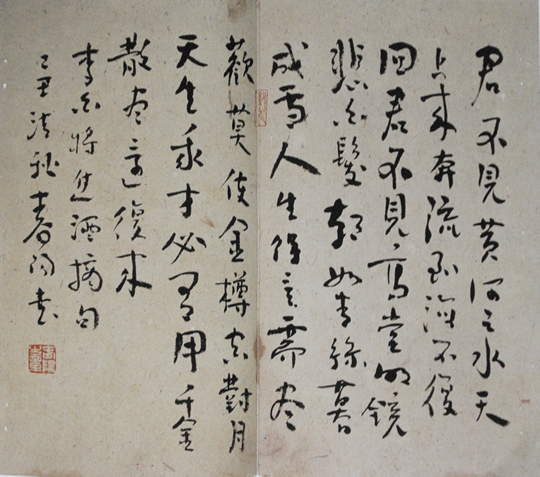 君不見黄河之水天
上來奔流到海不復
回君不見高堂明鏡
悲白髮朝如青絲暮
成雪人生得意需尽
歡莫使金樽空對月
天生我才必有用千金
散尽還復來
李白將進酒摘句
己丑清秋春